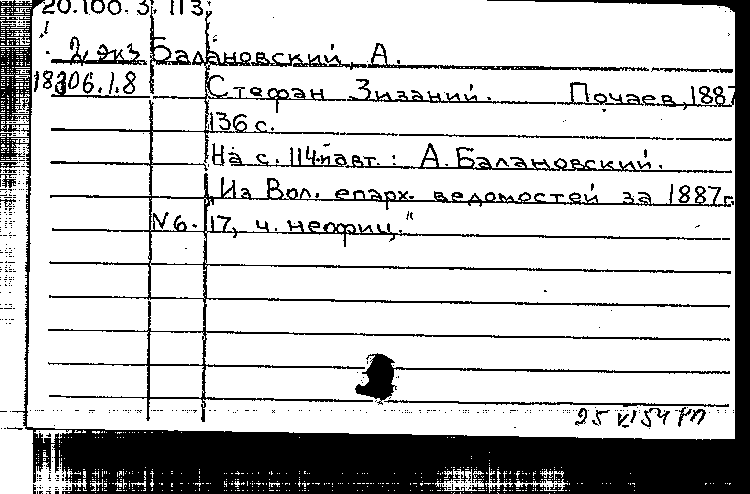 20.100.3.113.
2 экз Балановский, А.
18306.1.8 Стефан Зизаний. Почаев, 1887
136 с.
На с. 114 авт.: А. Балановский.
„Из Вол. епарх. ведомостей за 1887г.
N 6. 17, ч. неофиц."
25 VI 54